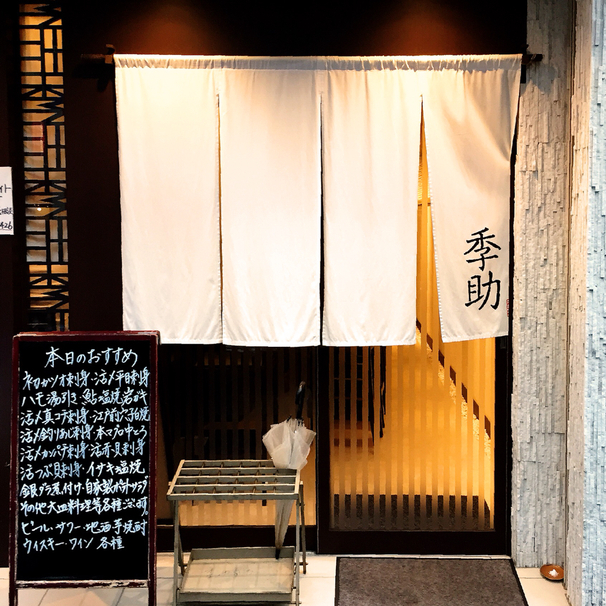 季助
本日のおすすめ
初カツオ刺身・活〆平目刺身
ハモ湯引き・鮎塩焼岩ガキ
活〆真コチ刺身・江戸前穴子白焼
活〆釣りあじ刺身・本マグロ中とろ
活〆カンパチ刺身・活赤貝刺身
活つぶ貝刺身・イサキ塩焼
銀ダラ煮付け・自家製ポテトサラダ
その他大皿料理等各種ございます
ビール・サワー・地酒・芋焼酎
ウィスキー・ワイン 各種
イト
426